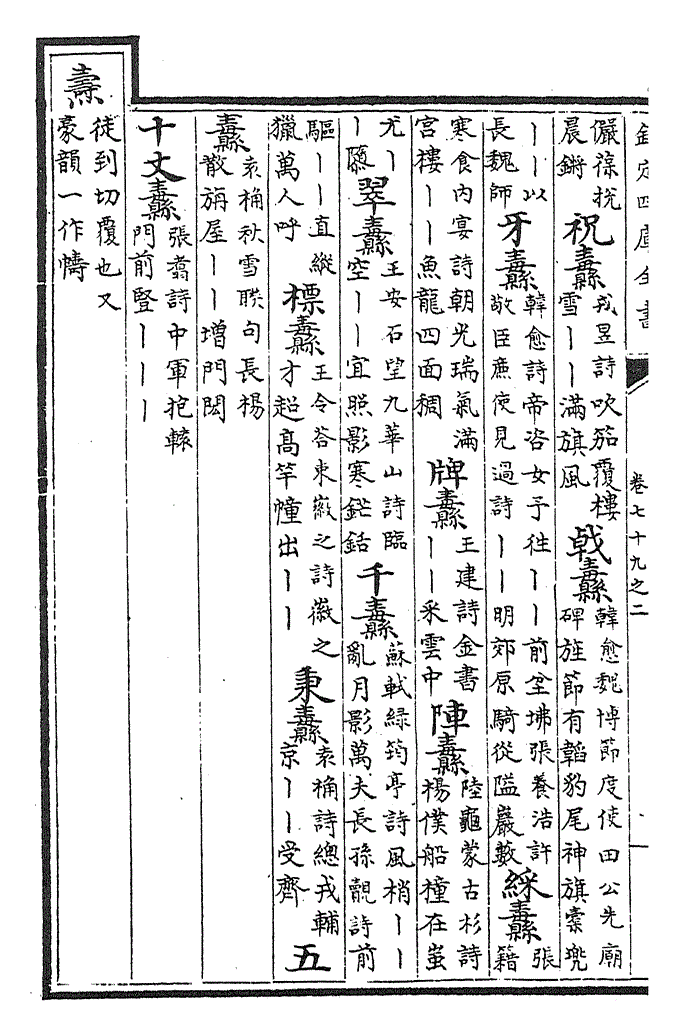 欽定四庫全書 卷七十九之二
儼葆晨鏘 祝纛 戎昱詩吹笳覆樓雪丨丨滿旗風 戟纛 韓愈魏博節度使田公先廟碑旌節有韜豹尾神旗櫜兜
丨丨以長魏師 牙纛 韓愈詩帝咨女予往丨丨前坌坲張養浩許敬臣廉使見過詩丨丨明郊原騎從隘巖藪 綵纛 張籍
寒食内宴詩朝光瑞氣滿宮樓丨丨魚龍四面稠 牌纛 王建詩金書丨丨采雲中 陣纛 陸龜蒙古杉詩楊僕船橦在蚩
尤丨隳 翠纛 王安石望九華山詩臨空丨丨宜照影寒鋩銛 千纛 蘇軾綠筠亭詩風梢丨丨亂月影萬夫長孫覿詩前
驅丨丨直縱獵萬人呼 標纛 王令荅束徽之詩徽之才超高竿幢出丨丨 秉纛 袁桷詩總戎輔京丨丨受齊 五
纛 袁桷秋雪聯句長楊散旃屋丨丨增門閎
十丈纛 張翥詩中軍抱轅門前竪丨丨丨
燾 徒到切覆也又豪韻一作幬